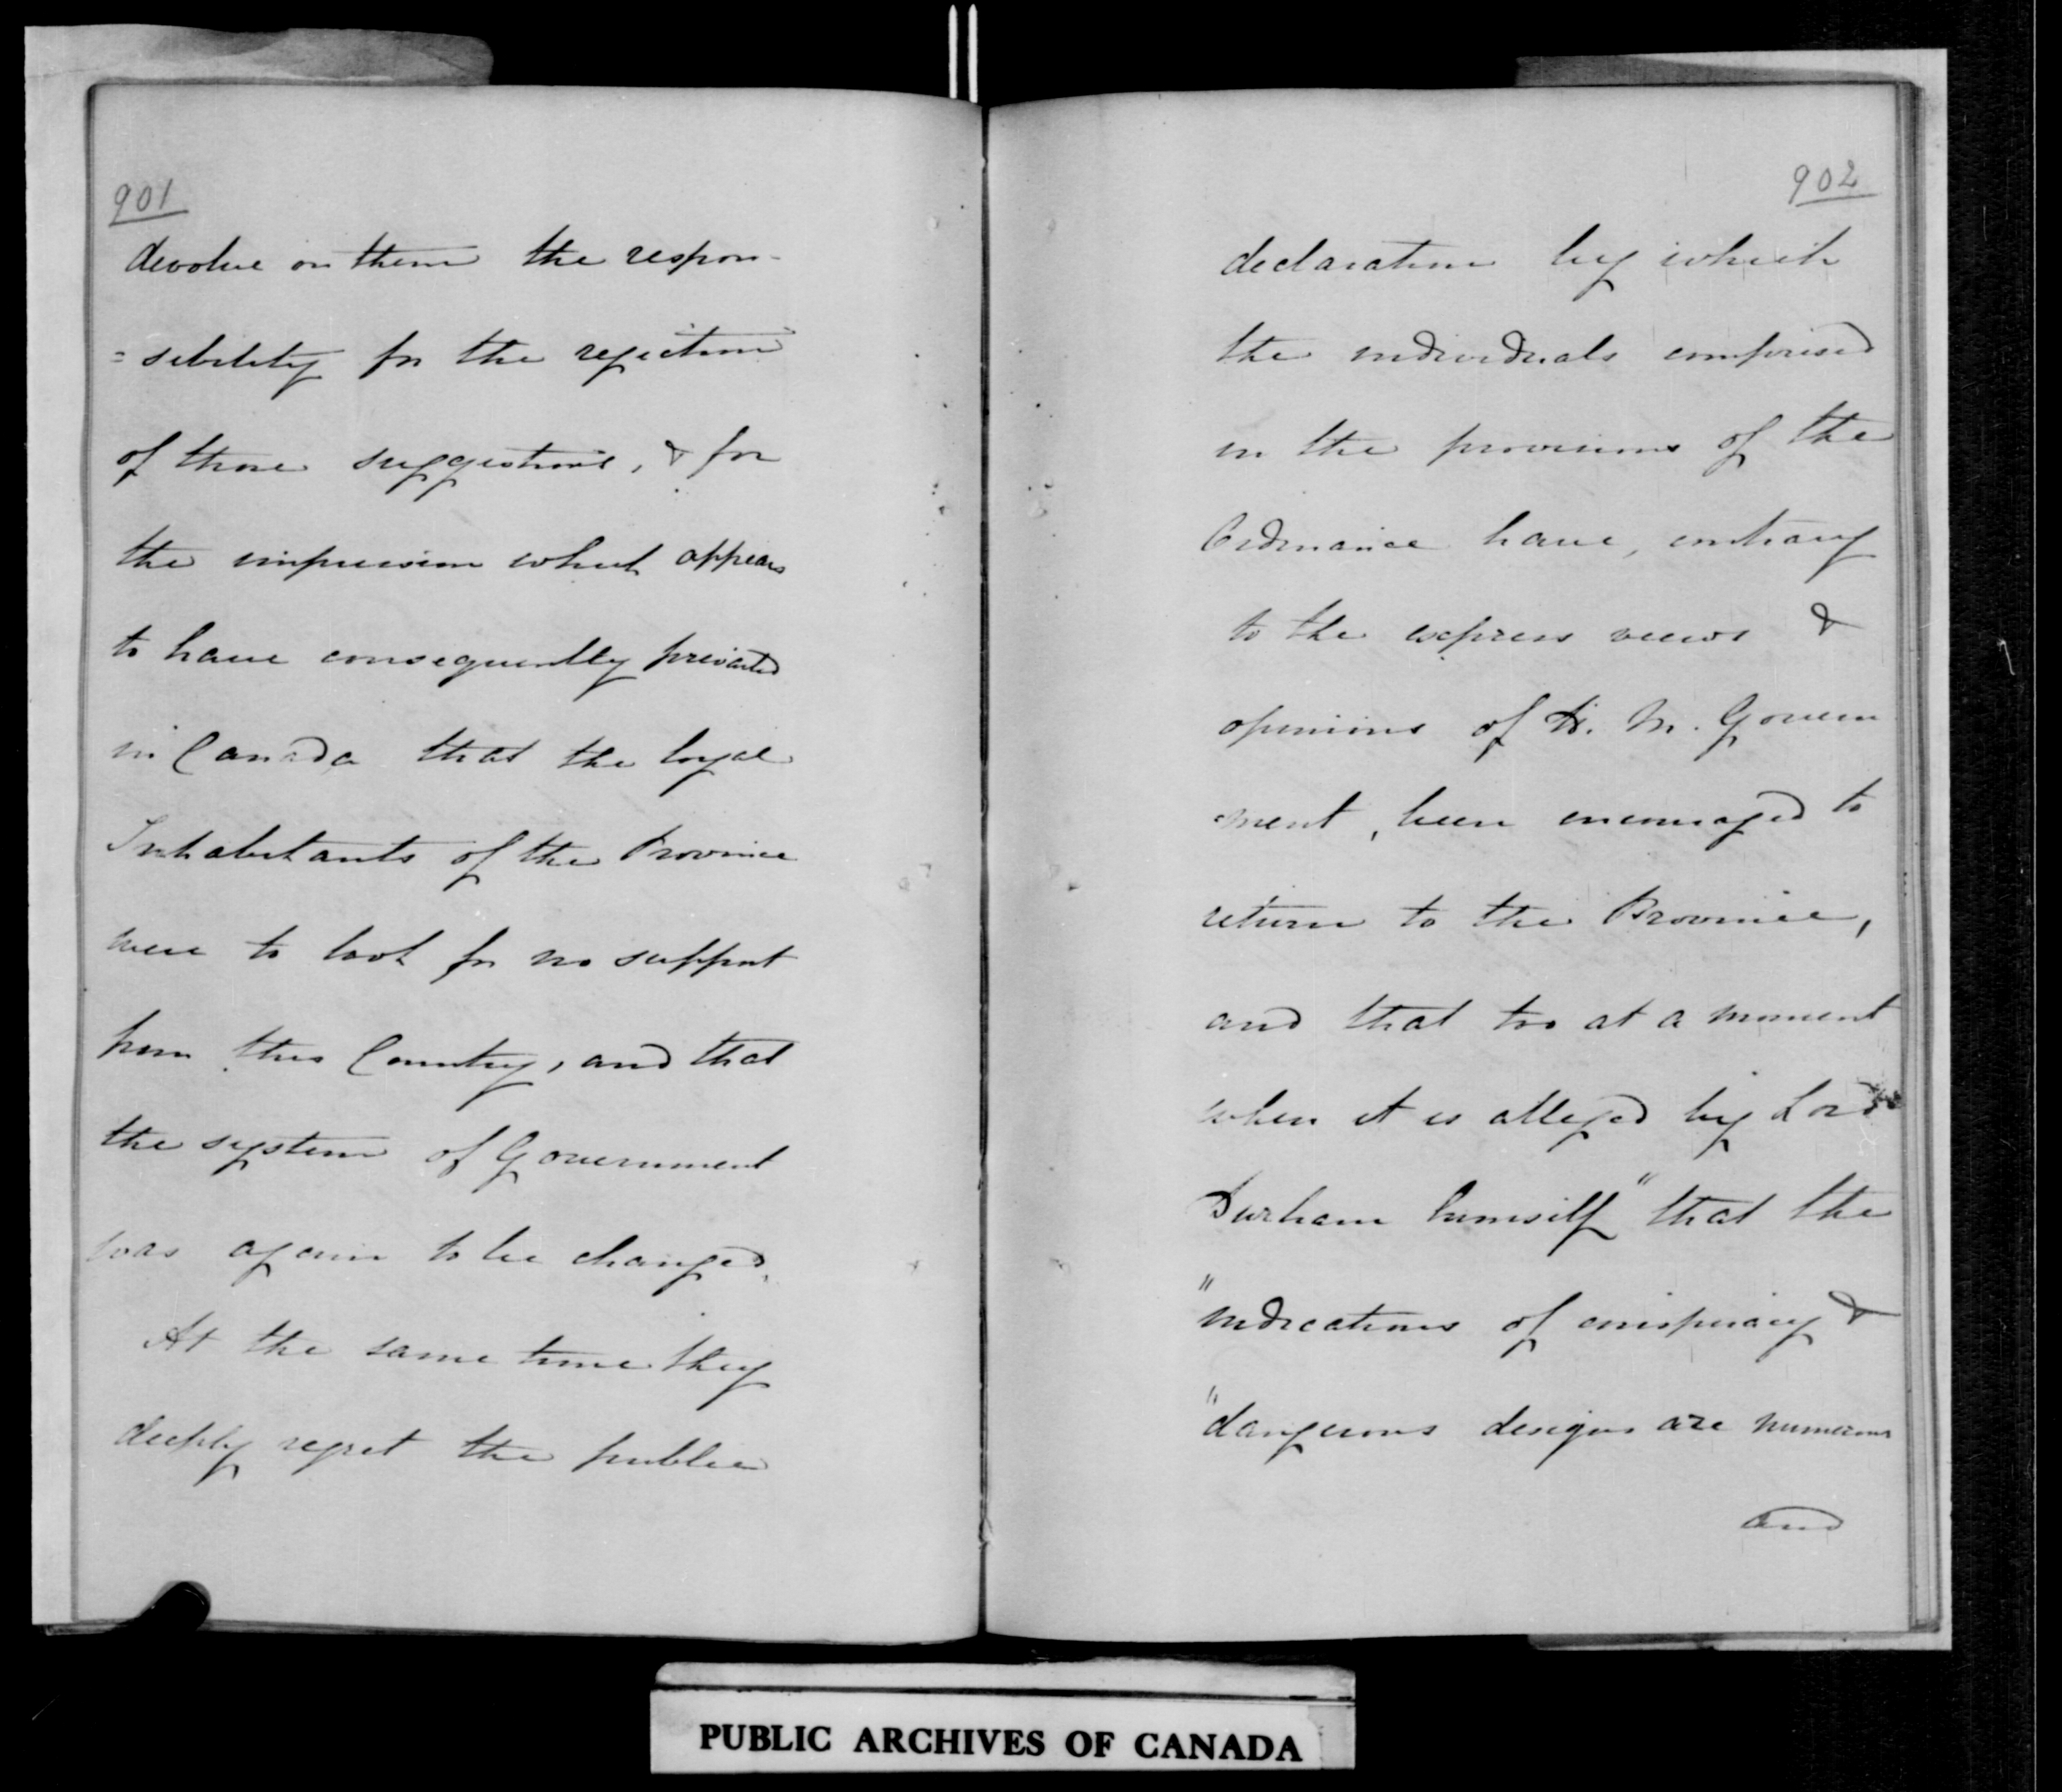 901
devolve on them the respon-
=sibility for the rejection
of those suggestions, & for
the impression which appears
to have consequently prevailed
in Canada that the loyal
Inhabitants of the Province
were to look for no support
from this Country, and that
the system of Government
was again to be changed.
At the same time they
deeply regret the public
902
declaration by which
the individuals comprised
in the provisions of the
Ordinance have, contrary
to the express views &
opinions of H. M. Govern
-ment, been encouraged to
return to the Province,
and that too at a moment
when it is alleged by Lord
Durham himself "that the
"indications of conspiracy &
"dangerous designs are numerous
and
PUBLIC ARCHIVES OF CANADA